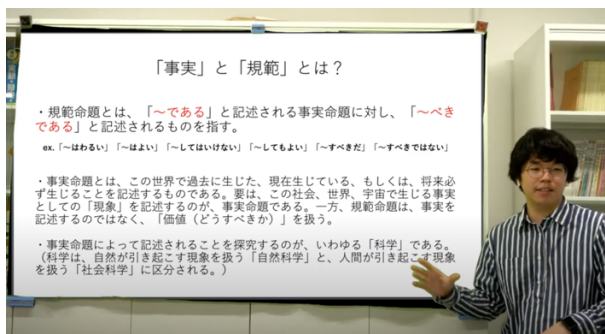 「事実」と「規範」とは？
・規範命題とは、「〜である」と記述される事実命題に対し、「〜べき
である」と記述されるものを指す。
ex.「〜はわるい」「〜はよい」「〜してはいけない」「〜してもよい」「〜すべきだ」「〜すべきではない」
・事実命題とは、この世界で過去に生じた、現在生じている、もしくは、将来必
ず生じることを記述するものである。要は、この社会、世界、宇宙で生じる事実
としての「現象」を記述するのが、事実命題である。一方、規範命題は、事実を
記述するのではなく、「価値（どうすべきか）」を扱う。
・事実命題によって記述されることを探究するのが、いわゆる「科学」である。
（科学は、自然が引き起こす現象を扱う「自然科学」と、人間が引き起こす現象
を扱う「社会科学」に区分される。）